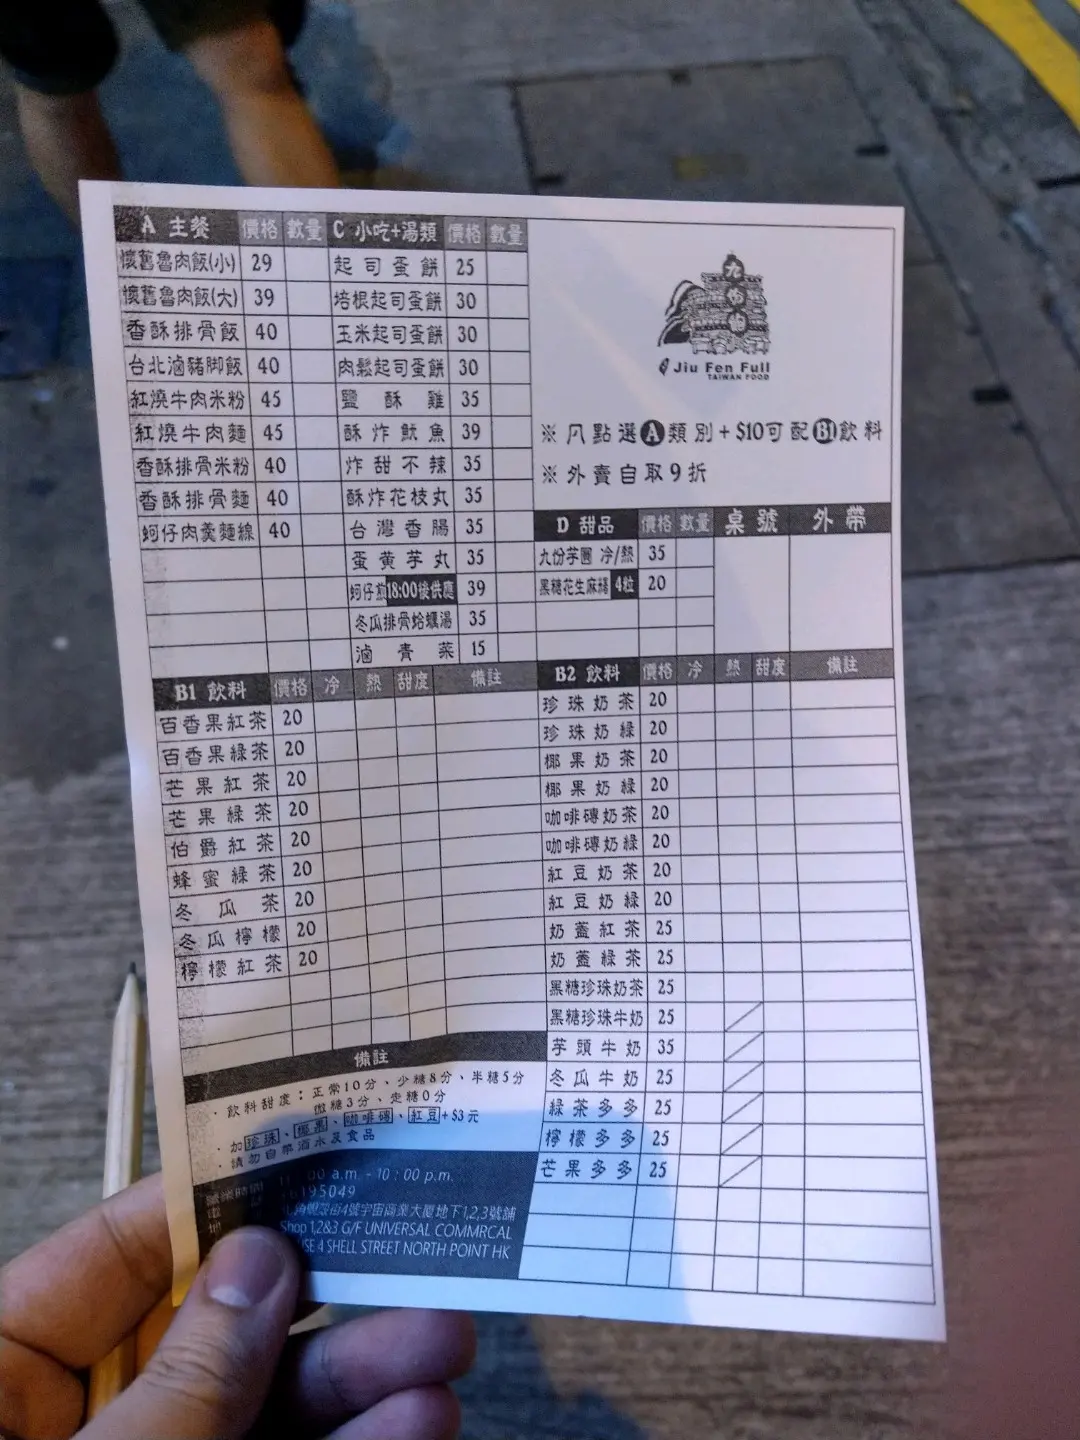 A 主餐 價格 數量
懷舊魯肉飯(小) 29
懷舊魯肉飯(大) 39
香酥排骨飯 40
台北滷豬脚飯 40
紅燒牛肉米粉 45
紅燒牛肉麵 45
香酥排骨米粉 40
香酥排骨麵 40
蚵仔肉羹麵線 40
C 小吃+湯類 價格 數量
起司蛋餅 25
培根起司蛋餅 30
玉米起司蛋餅 30
肉鬆起司蛋餅 30
鹽酥雞 35
酥炸魷魚 39
炸甜不辣 35
酥炸花枝丸 35
台灣香腸 35
蛋黃芋丸 35
蚵仔煎18:00後供應 39
冬瓜排骨蛤蠣湯 35
滷青菜 15
九份
Jiu Fen Full
TAIWAN FOOD
※凡點選A類別+$10可配B1飲料
※外賣自取9折
D 甜品 價格 數量 桌號 外帶
九份芋圓 冷/熱 35
黑糖花生麻糬 4粒 20
B1 飲料 價格 冷 熱 甜度 備註
百香果紅茶 20
百香果綠茶 20
芒果紅茶 20
芒果綠茶 20
伯爵紅茶 20
蜂蜜綠茶 20
冬瓜茶 20
冬瓜檸檬 20
檸檬紅茶 20
B2 飲料 價格 冷 熱 甜度 備註
珍珠奶茶 20
珍珠奶綠 20
椰果奶茶 20
椰果奶綠 20
咖啡磚奶茶 20
咖啡磚奶綠 20
紅豆奶茶 20
紅豆奶綠 20
奶蓋紅茶 25
奶蓋綠茶 25
黑糖珍珠奶茶 25
黑糖珍珠牛奶 25
芋頭牛奶 35
冬瓜牛奶 25
綠茶多多 25
檸檬多多 25
芒果多多 25
備註
· 飲料甜度：正常10分、少糖8分、半糖5分
微糖3分、走糖0分
· 加珍珠、椰果、咖啡磚、紅豆+$3元
· 請勿自帶酒水及食品
營業時間 00 a.m. - 10:00 p.m.
195049
角蜆殼街4號宇宙商業大廈地下1,2,3號鋪
Shop 1,2&3 G/F UNIVERSAL COMMRCAL
USE 4 SHELL STREET NORTH POINT HK